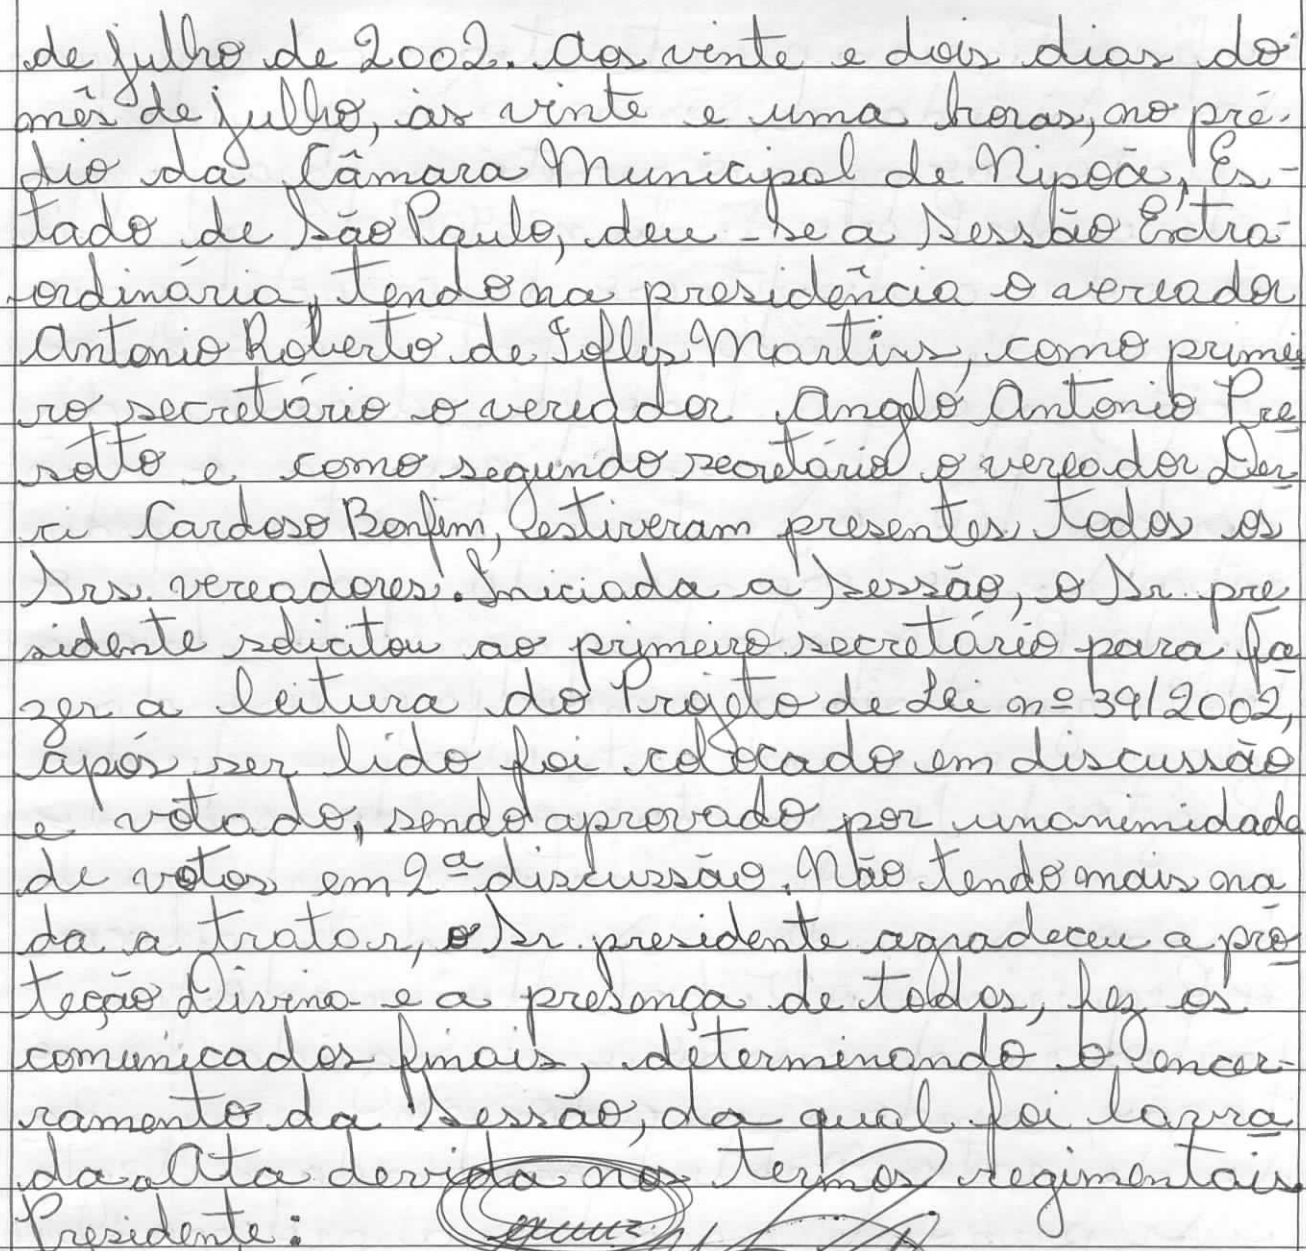 de julho de 2002. Aos vinte e dois dias do
mês de julho, às vinte e uma horas, no pré-
dio da Câmara Municipal de Nipoã, Es-
tado de São Paulo, deu-se a Sessão Extra
ordinária, tendo na presidência o vereador
Antonio Roberto de Martins, como primei
ro secretário o vereador Angelo Antonio Pre
sotto e como segundo secretário o vereador Der
ci Cardoso Bonfim, estiveram presentes todos os
Srs. vereadores. Iniciada a Sessão, o Sr. pre
sidente solicitou ao primeiro secretário para fa
zer a leitura do Projeto de Lei nº 39/2002,
após ser lido foi colocado em discussão
e votado, sendo aprovado por unanimidade
de votos em 2ª discussão. Não tendo mais na
da a tratar, o Sr. presidente agradeceu a pro
teção Divina e a presença de todos, fez os
comunicados finais, determinando o encer-
ramento da Sessão, da qual foi lavra
da a Ata devida nos termos regimentais.
Presidente: